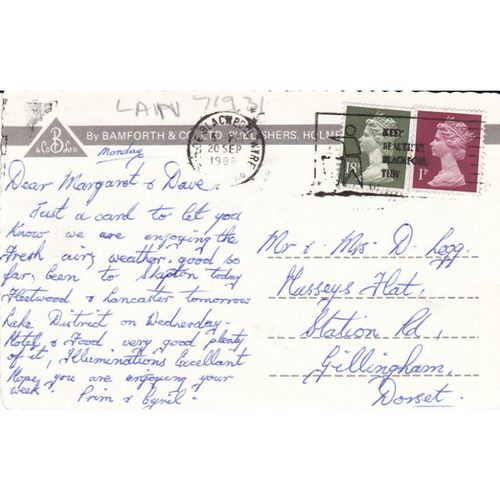 LAIN 71931
B
& Co Ltd
By BAMFORTH & CO. LTD. PUBLISHERS, HOLMF
BLACKPOOL
20 SEP
1988
KEEP
BEAUTIFUL
BLACKPOOL
TIDY
18P
1P
Monday
Dear Margaret & Dave,
Just a card to let you
know we are enjoying the
fresh air, weather, good so
far, been to Skipton today
Fleetwood & Lancaster tomorrow
Lake District on Wednesday.
Hotel & Food very good plenty
of it, Illuminations Excellant
Hope you are enjoying your
week. Prim & Cyril.
Mr & Mrs D. Legg.
Husseys Flat,
Station Rd,
Gillingham,
Dorset.